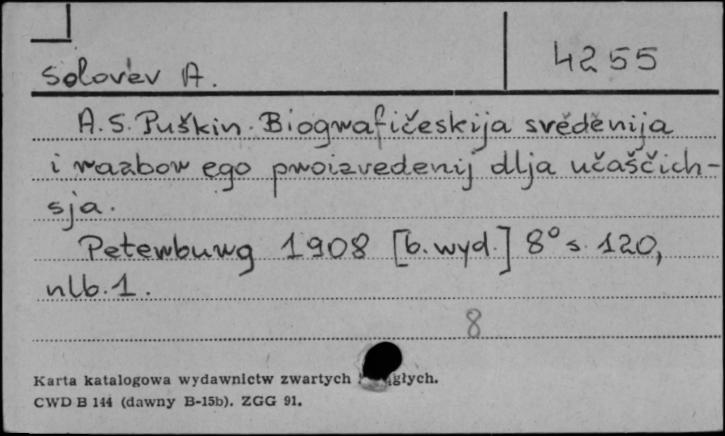 4255
Solov'ev A.
A.S. Puškin. Biografičeskija svěděnija
i razbor ego proizvedenij dlja učaščich-
sja.
Peterburg 1908 [b.wyd.] 8° s. 120,
nlb. 1.
8
Karta katalogowa wydawnictw zwartych głych.
CWD B 144 (dawny B-15b). ZGG 91.